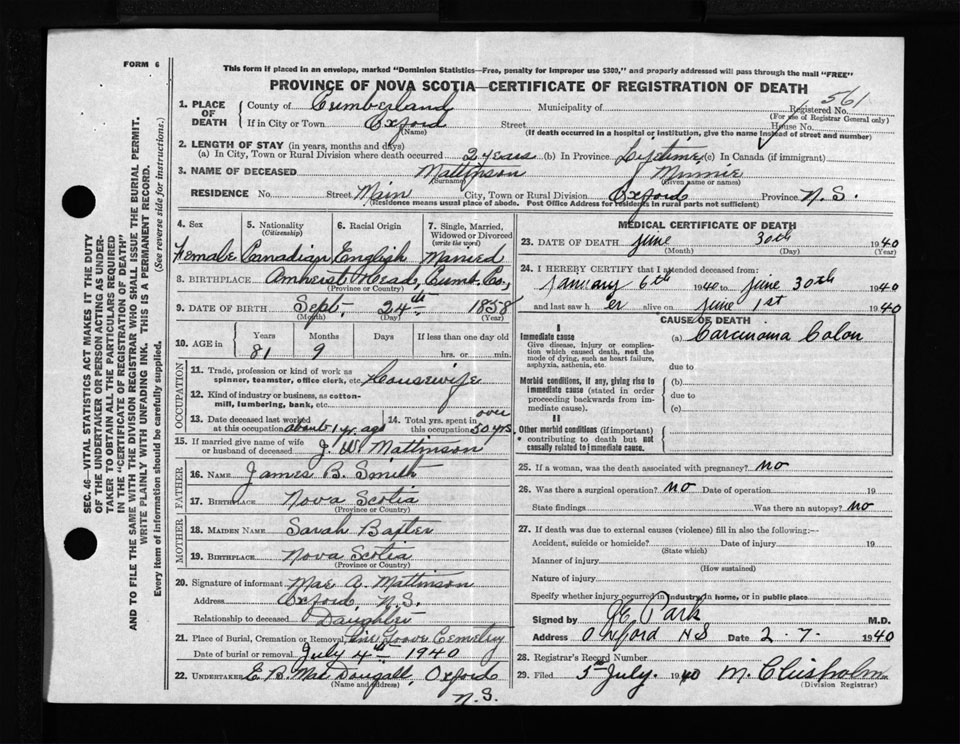 FORM 6
This form if placed in an envelope, marked "Dominion Statistics—Free, penalty for improper use $300," and properly addressed will pass through the mail "FREE"
PROVINCE OF NOVA SCOTIA—CERTIFICATE OF REGISTRATION OF DEATH
1. PLACE OF DEATH
County of Cumberland Municipality of Registered No. 561
(For use of Registrar General only)
If in City or Town Oxford Street House No.
(Name) (If death occurred in a hospital or institution, give the name instead of street and number)
2. LENGTH OF STAY (in years, months and days)
(a) In City, Town or Rural Division where death occurred 2 years (b) In Province Lifetime (c) In Canada (if immigrant)
3. NAME OF DECEASED Mattinson Minnie
(Surname) (Given name or names)
RESIDENCE No. Street Main City, Town or Rural Division Oxford Province N.S.
(Residence means usual place of abode. Post Office Address for residents in rural parts not sufficient)
4. Sex 5. Nationality (Citizenship) 6. Racial Origin 7. Single, Married, Widowed or Divorced (write the word)
Female Canadian English Married
8. BIRTHPLACE Amherst Head, Cumb. Co.,
(Province or Country)
9. DATE OF BIRTH Sept. 24th 1858
(Month) (Day) (Year)
10. AGE in Years Months Days If less than one day old
81 9 hrs. or min.
OCCUPATION
11. Trade, profession or kind of work as spinner, teamster, office clerk, etc. Housewife
12. Kind of industry or business, as cotton-mill, lumbering, bank, etc.
13. Date deceased last worked at this occupation about 1 yr ago
14. Total yrs. spent in this occupation over 50 yrs.
15. If married give name of wife or husband of deceased J. W. Mattinson
FATHER
16. NAME James B. Smith
17. BIRTHPLACE Nova Scotia
(Province or Country)
MOTHER
18. MAIDEN NAME Sarah Baxter
19. BIRTHPLACE Nova Scotia
(Province or Country)
20. Signature of informant Mae A. Mattinson
Address Oxford, N.S.
Relationship to deceased Daughter
21. Place of Burial, Cremation or Removal Pine Grove Cemetery
Date of burial or removal July 4th 1940
22. UNDERTAKER E. B. MacDougall, Oxford
(Name and address) N.S.
MEDICAL CERTIFICATE OF DEATH
23. DATE OF DEATH June 30th 1940
(Month) (Day) (Year)
24. I HEREBY CERTIFY that I attended deceased from:
January 6th 1940 to June 30th 1940
and last saw her alive on June 1st 1940
CAUSE OF DEATH
I
Immediate cause (a) Carcinoma Colon
Give disease, injury or complication which caused death, not the mode of dying, such as heart failure, asphyxia, asthenia, etc.
due to
Morbid conditions, if any, giving rise to immediate cause (stated in order proceeding backwards from immediate cause).
(b)
due to
(c)
II
Other morbid conditions (if important) contributing to death but not causally related to immediate cause.
25. If a woman, was the death associated with pregnancy? no
26. Was there a surgical operation? no Date of operation 19
State findings Was there an autopsy? no
27. If death was due to external causes (violence) fill in also the following:—
Accident, suicide or homicide? Date of injury 19
(State which)
Manner of injury
(How sustained)
Nature of injury
Specify whether injury occurred in industry, in home, or in public place
Signed by Park M.D.
Address Oxford N S Date 2 . 7 . 1940
28. Registrar's Record Number
29. Filed 5th July. 1940 M. Chisholm
(Division Registrar)
SEC. 46—VITAL STATISTICS ACT MAKES IT THE DUTY
OF THE UNDERTAKER OR PERSON ACTING AS UNDER-
TAKER TO OBTAIN ALL THE PARTICULARS REQUIRED
IN THE "CERTIFICATE OF REGISTRATION OF DEATH"
AND TO FILE THE SAME WITH THE DIVISION REGISTRAR WHO SHALL ISSUE THE BURIAL PERMIT.
WRITE PLAINLY WITH UNFADING INK. THIS IS A PERMANENT RECORD.
Every item of information should be carefully supplied. (See reverse side for instructions.)